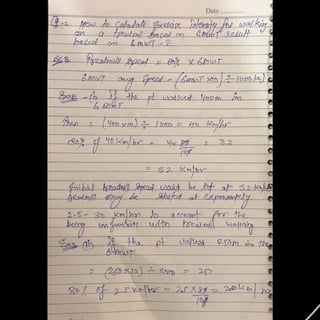 Date
Q-2 How to Calculate Exercise intensity for walking
on a treadmill based on 6MWT result
based on 6MWT = ?
Treadmill Speed = 80% x 6MWT
6MWT avg Speed = (6MWD x10) ÷ 1000 km/
if the pt walked 400m in
6MWT
then = (400 x10) ÷ 1000 = 40 km/hr
80% of 40 km/hr = 4 x 8 = 32
10
= 32 km/hr
Initial treadmill Speed would be Set at 32 km/hr
treadmill may be started at
2.5 - 30 km/hr to account for the
being unfamiliar with treadmill walking
if the pt walked 250m in the
6MWT
= (250 x10) ÷ 1000 = 25
80% of 2.5 km/hr = 2.5 x 8 = 200 km/hr
10